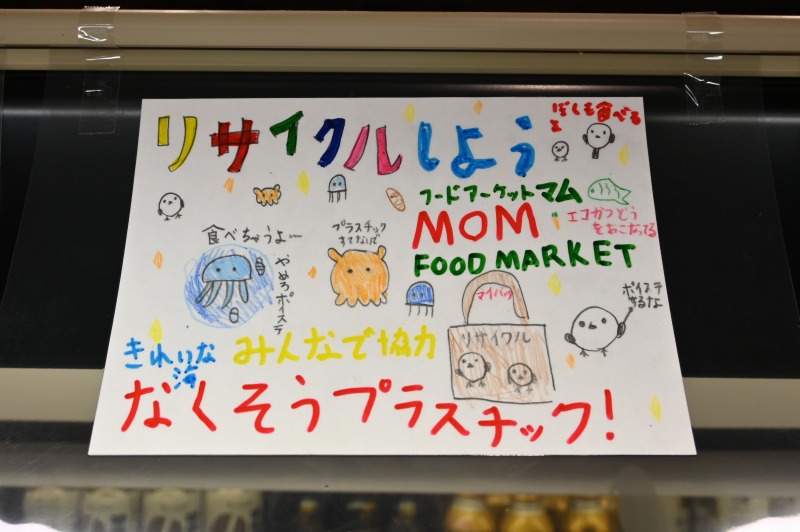 リサイクルしよう
ぼくも食べる
フードマーケットマム
MOM
FOOD MARKET
エコかつどう
をおこなってる
食べちゃうよー
やめろポイステ
プラスチック
すてないで
マイバック
リサイクル
ポイステ
するなよ
きれいな
海
みんなで協力
なくそうプラスチック!